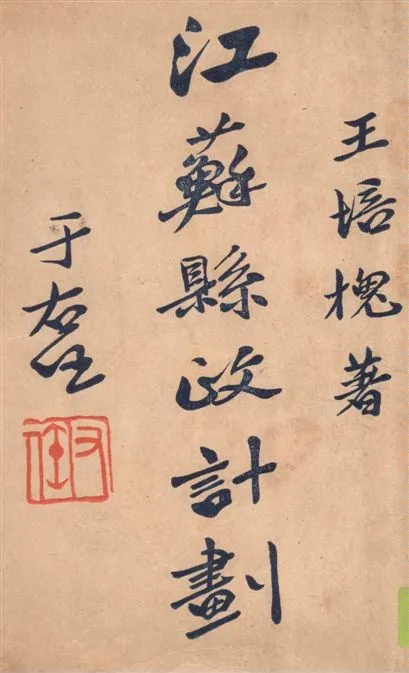 王培槐著
江蘇縣政計劃
于右任
右任